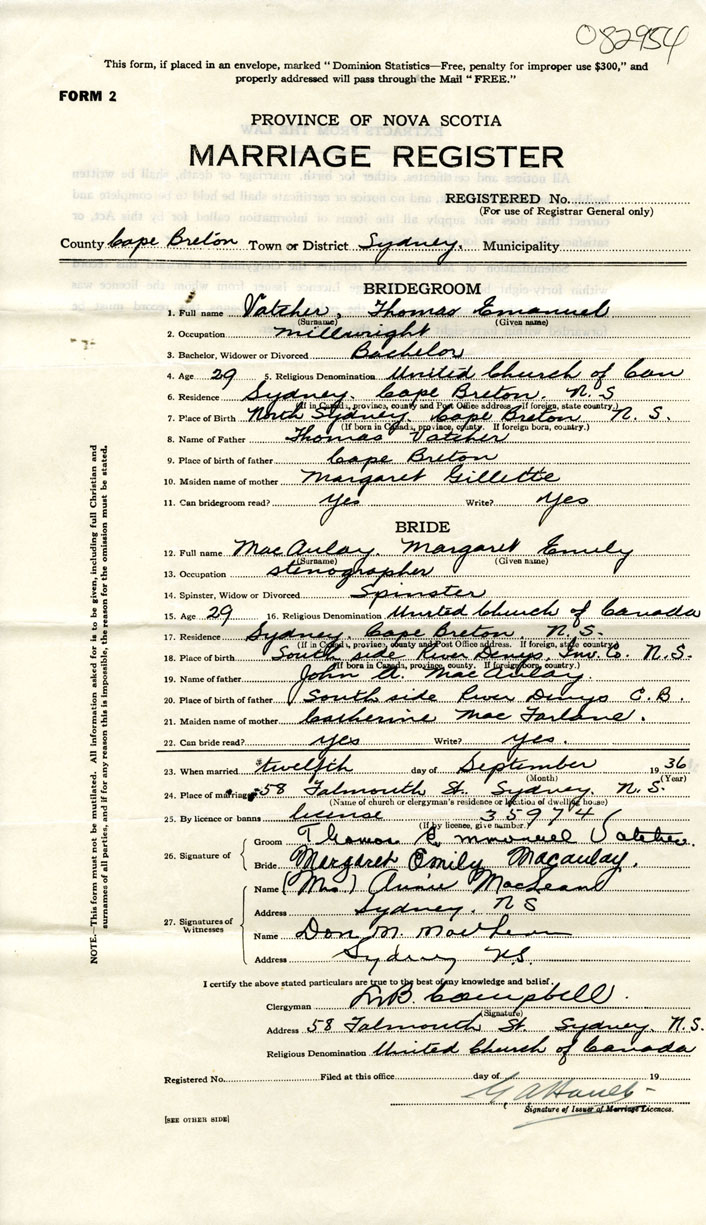 082954
This form, if placed in an envelope, marked "Dominion Statistics—Free, penalty for improper use $300," and
properly addressed will pass through the Mail "FREE."
FORM 2
PROVINCE OF NOVA SCOTIA
MARRIAGE REGISTER
REGISTERED No.
(For use of Registrar General only)
County Cape Breton Town or District Sydney. Municipality
BRIDEGROOM
1. Full name Vatcher, Thomas Emanuel
(Surname) (Given name)
2. Occupation millwright
3. Bachelor, Widower or Divorced Bachelor
4. Age 29 5. Religious Denomination United Church of Can
6. Residence Sydney. Cape Breton. N.S
(If in Canada, province, county and Post Office address, if foreign, state country.)
7. Place of Birth North Sydney. Cape Breton N.S.
(If born in Canada, province, county. If foreign born, country.)
8. Name of Father Thomas Vatcher
9. Place of birth of father Cape Breton
10. Maiden name of mother Margaret Gillette
11. Can bridegroom read? yes Write? yes
BRIDE
12. Full name MacAulay. Margaret Emily
(Surname) (Given name)
13. Occupation stenographer
14. Spinster, Widow or Divorced Spinster
15. Age 29 16. Religious Denomination United Church of Canada
17. Residence Sydney. Cape Breton. N.S.
(If in Canada, province, county and Post Office address. If foreign, state country.)
18. Place of birth South side River Denys, Inv. Co. N.S.
(If born in Canada, province, county. If foreign born, country.)
19. Name of father John A. MacAulay.
20. Place of birth of father South side River Denys C.B.
21. Maiden name of mother Catherine MacFarlane.
22. Can bride read? yes Write? yes.
23. When married twelfth day of September 1936
(Month) (Year)
24. Place of marriage 58 Falmouth St. Sydney. N.S.
(Name of church or clergyman's residence or location of dwelling house)
25. By licence or banns license 35974
(If by licence, give number.)
26. Signature of Groom Thomas Emmanuel Vatcher.
Bride Margaret Emily Macaulay.
27. Signatures of Witnesses Name (Mrs.) Annie MacLean
Address Sydney. NS
Name Don. M. MacLean
Address Sydney NS.
I certify the above stated particulars are true to the best of my knowledge and belief.
Clergyman Campbell.
(Signature)
Address 58 Falmouth St. Sydney. N.S.
Religious Denomination United Church of Canada
Registered No. Filed at this office day of 19
Signature of Issuer of Marriage Licences.
[SEE OTHER SIDE]
NOTE.—This form must not be mutilated. All information asked for is to be given, including full Christian and
surnames of all parties, and if for any reason this is impossible, the reason for the omission must be stated.